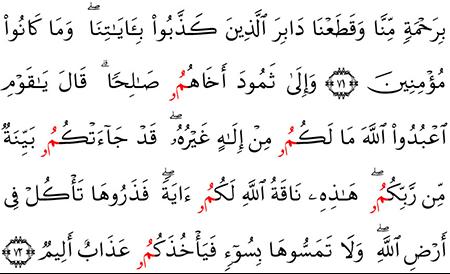 بِرَحْمَةٍ مِّنَّا وَقَطَعْنَا دَابِرَ ٱلَّذِينَ كَذَّبُوا۟ بِـَٔايَـٰتِنَا ۖ وَمَا كَانُوا۟
مُؤْمِنِينَ ﴿٧١﴾ وَإِلَىٰ ثَمُودَ أَخَاهُمُۥ صَـٰلِحًا ۗ قَالَ يَـٰقَوْمِ
ٱعْبُدُوا۟ ٱللَّهَ مَا لَكُمُۥ مِنْ إِلَـٰهٍ غَيْرُهُۥ ۖ قَدْ جَآءَتْكُمُۥ بَيِّنَةٌ
مِّن رَّبِّكُمُۥ ۖ هَـٰذِهِۦ نَاقَةُ ٱللَّهِ لَكُمُۥ ءَايَةً ۖ فَذَرُوهَا تَأْكُلْ فِىٓ
أَرْضِ ٱللَّهِ ۖ وَلَا تَمَسُّوهَا بِسُوٓءٍ فَيَأْخُذَكُمُۥ عَذَابٌ أَلِيمٌ ﴿٧٢﴾